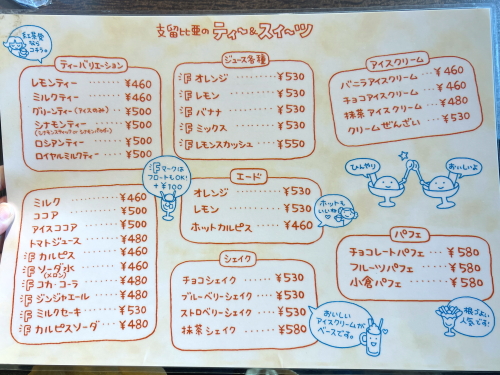 支留比亜の ティ〜&スイ〜ツ
紅茶党
なら
コチラ。
ティーバリエーション
レモンティー ¥460
ミルクティー ¥460
グリーンティー(アイスのみ) ¥500
シナモンティー ¥500
(シナモンスティック or シナモンパウダー)
ロシアンティー ¥500
ロイヤルミルクティー ¥500
ジュース各種
F オレンジ ¥530
F レモン ¥530
F バナナ ¥530
F ミックス ¥530
F レモンスカッシュ ¥550
アイスクリーム
バニラアイスクリーム ¥460
チョコアイスクリーム ¥460
抹茶アイスクリーム ¥480
クリームぜんざい ¥530
Fマークは
フロートもOK!
+¥100
ミルク ¥460
ココア ¥500
アイスココア ¥500
トマトジュース ¥480
F カルピス ¥460
F ソーダ水 ¥460
(メロン)
F コカ・コーラ ¥460
F ジンジャエール ¥480
F ミルクセーキ ¥530
F カルピスソーダ ¥480
エード
オレンジ ¥530
レモン ¥530
ホットカルピス ¥460
ホットも
いいね
シェイク
チョコシェイク ¥530
ブルーベリーシェイク ¥530
ストロベリーシェイク ¥530
抹茶シェイク ¥580
おいしい
アイスクリームが
ベースです。
ひんやり
おいしいよ
パフェ
チョコレートパフェ ¥580
フルーツパフェ ¥580
小倉パフェ ¥580
根づよい
人気です!